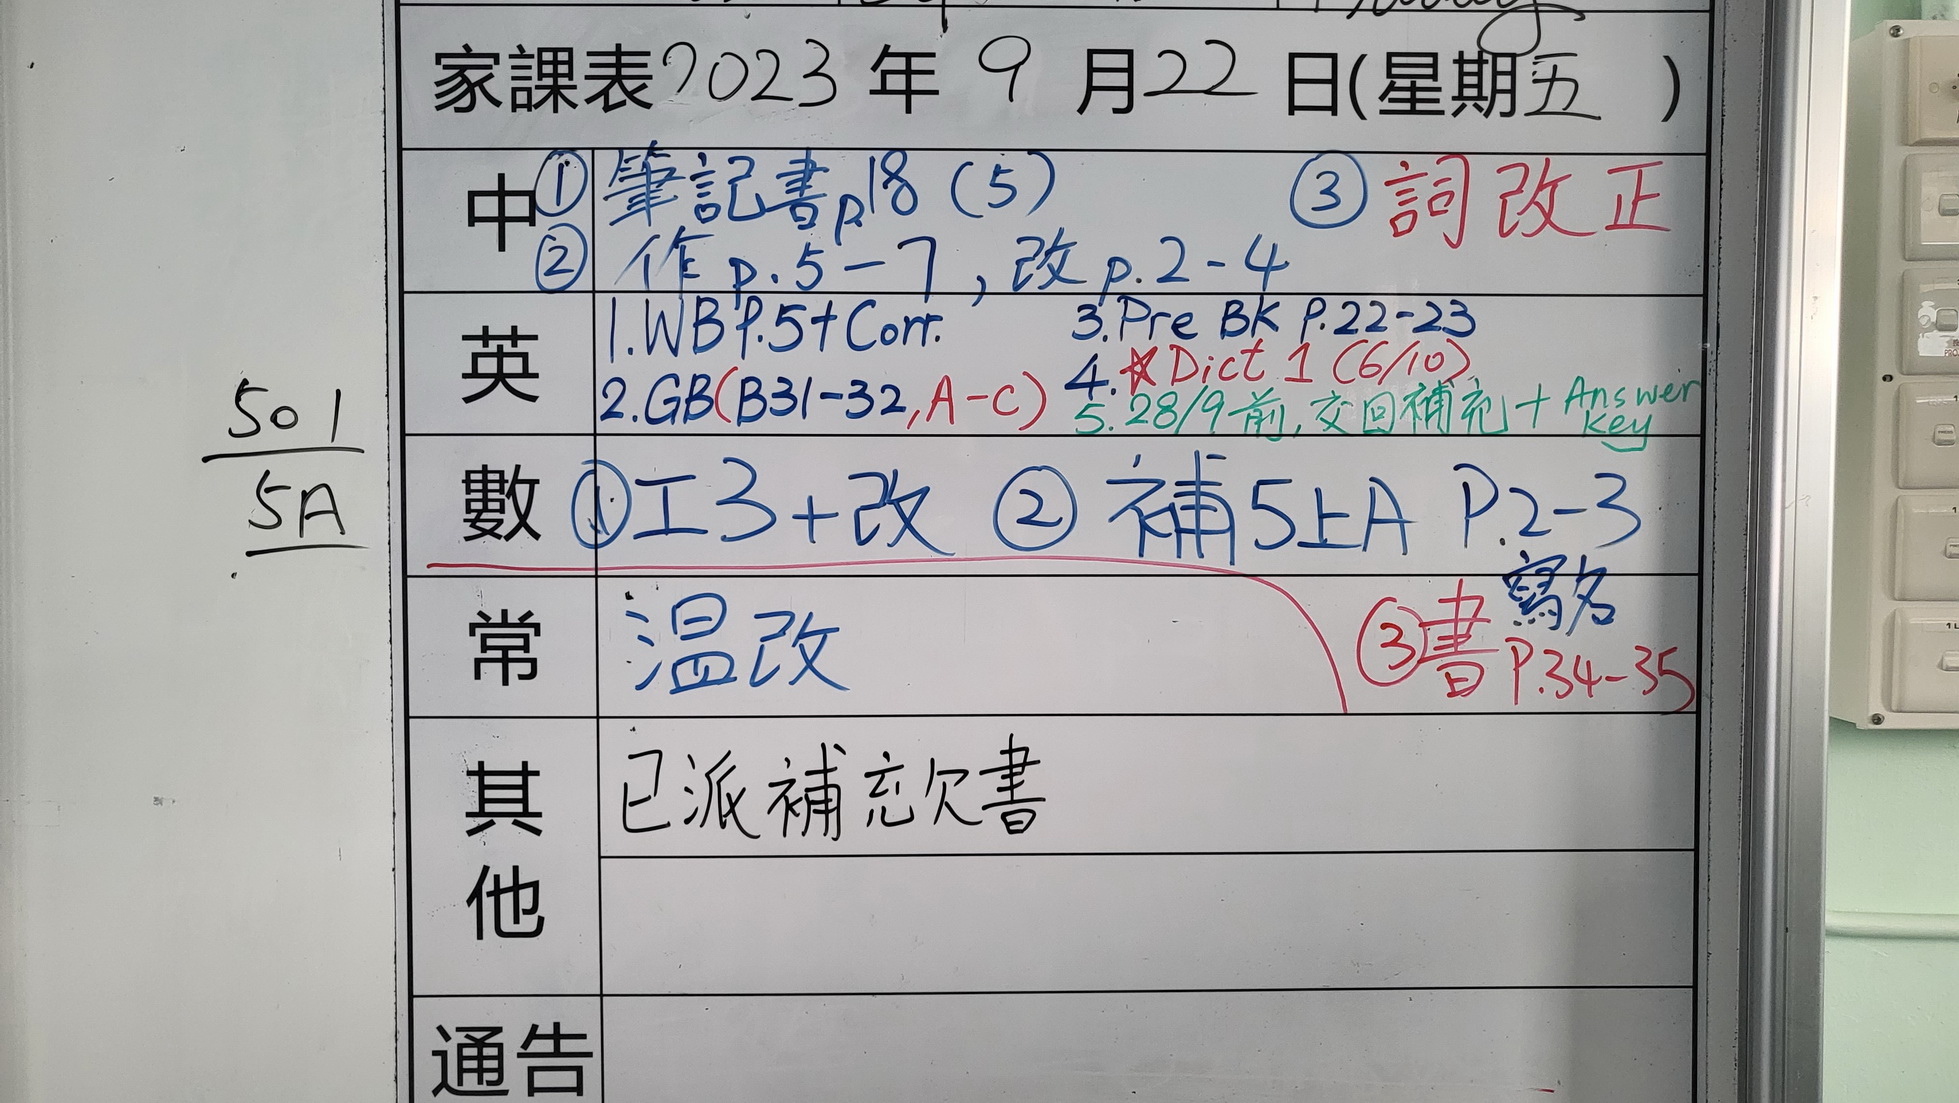 家課表2023年9月22日(星期五)
中 ① 筆記書p.18 (5) ③ 詞改正
② 作p.5-7, 改p.2-4
英 1.WB P.5+Corr. 3.Pre BK P.22-23
4.☆Dict 1 (6/10)
2.GB(B31-32,A-C)
5.28/9前,交回補充+Answer Key
501
5A
數 ①工3+改 ② 補5上A P.2-3
寫名
常 温改 ③書P.34-35
其他 已派補充欠書
通告